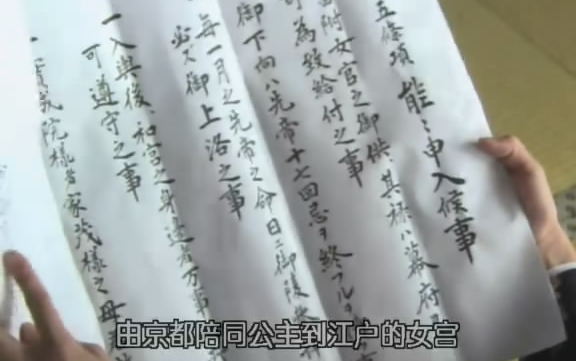 五條項能々申入候事
附女官之御供其禄ハ幕府
可為致給付之事
御下向ハ先帝十七回忌ヲ終フル
毎一月之先帝之命日ニ御陵参
必ズ御上洛之事
一入輿後和宮之身辺者万事
可遵守之事
院様者家茂様之母
由京都陪同公主到江户的女宫